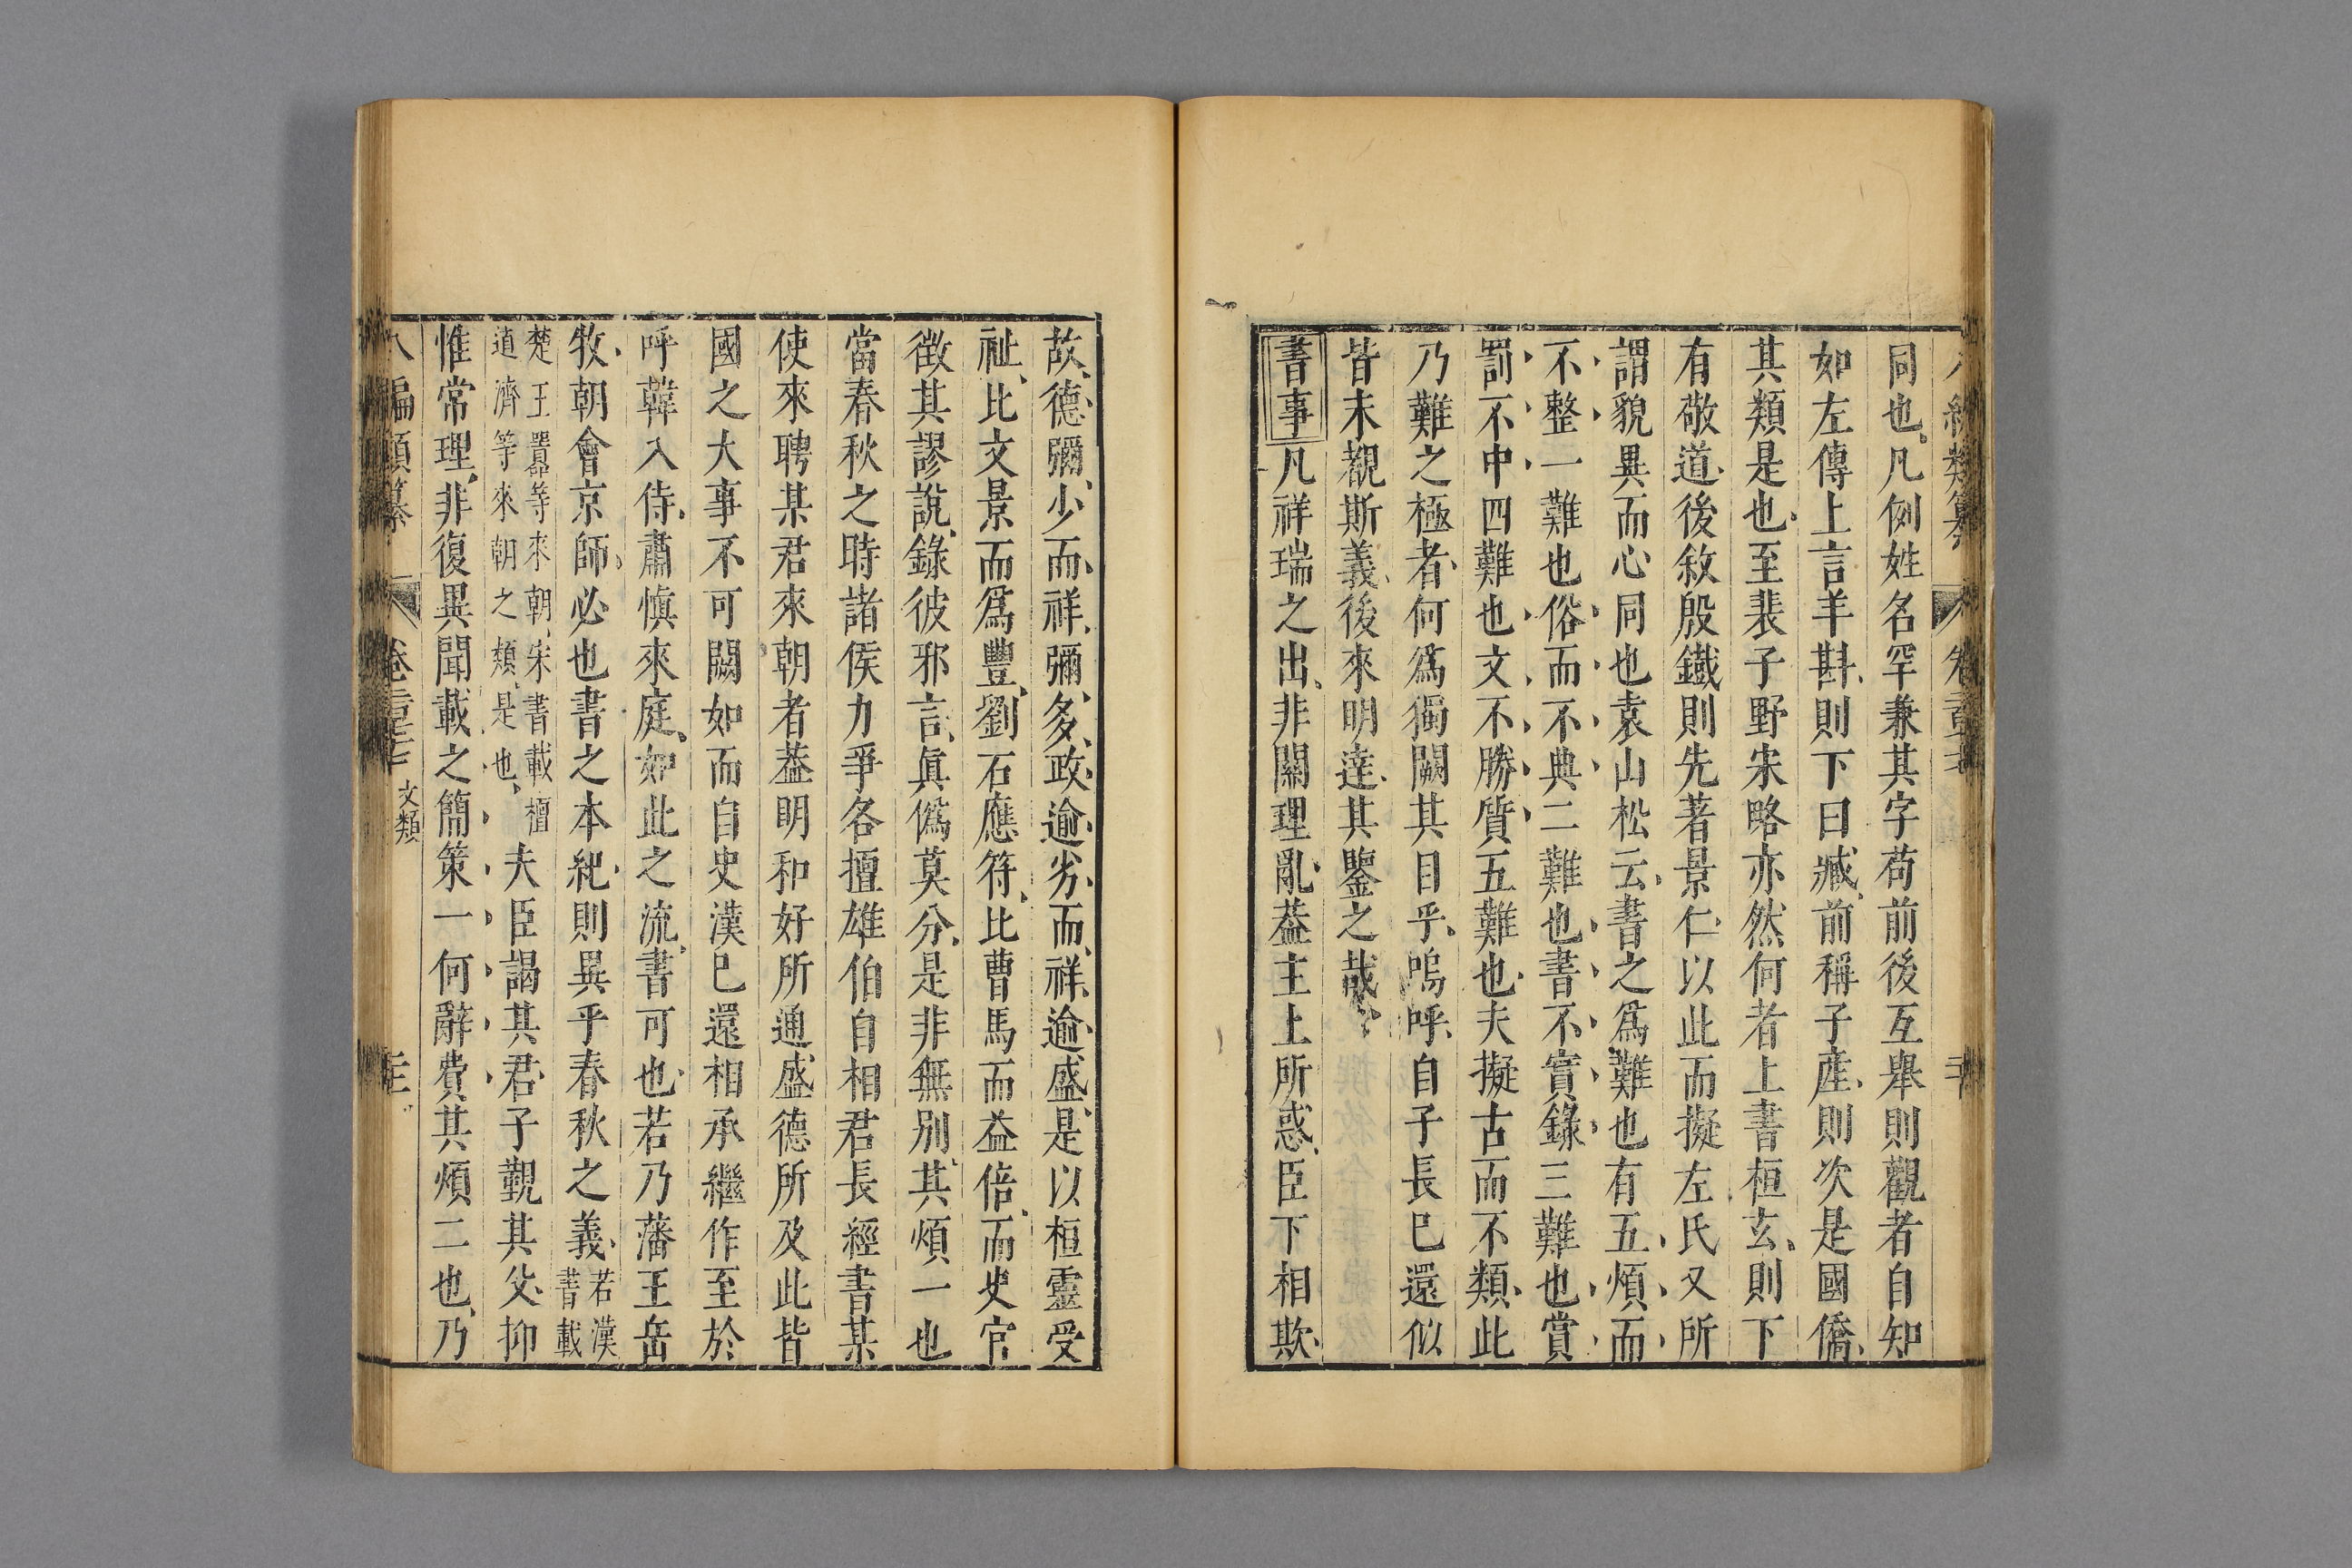 同也凡例姓名罕兼其字苟前後互舉則觀者自知
如左傳上言羊斟則下曰臧前稱子產則次是國僑
其類是也至裴子野宋略亦然何者上書桓玄則下
有敬道後敘殷鐵則先著景仁以此而擬左氏又所
謂貌異而心同也袁山松云書之爲難也有五煩而
不整一難也俗而不典二難也書不實錄三難也賞
罰不中四難也文不勝質五難也夫擬古而不類此
乃難之極者何爲獨闕其目乎嗚呼自子長已還似
皆未覩斯義後來明達其鑒之哉
書事凡祥瑞之出非關理亂葢主上所惑臣下相欺
故德彌少而祥彌多政逾劣而祥逾盛是以桓靈受
祉比文景而爲豐劉石應符比曹馬而益倍而史官
徵其謬說錄彼邪言眞僞莫分是非無別其煩一也
當春秋之時諸侯力爭各擅雄伯自相君長經書某
使來聘某君來朝者葢明和好所通盛德所及此皆
國之大事不可闕如而自史漢已還相承繼作至於
呼韓入侍肅慎來庭如此之流書可也若乃藩王岳
牧朝會京師必也書之本紀則異乎春秋之義若漢書載
楚王囂等來朝宋書載檀道濟等來朝之類是也夫臣謁其君子覲其父抑
惟常理非復異聞載之簡策一何辭費其煩二也乃
八編類纂 卷 文類